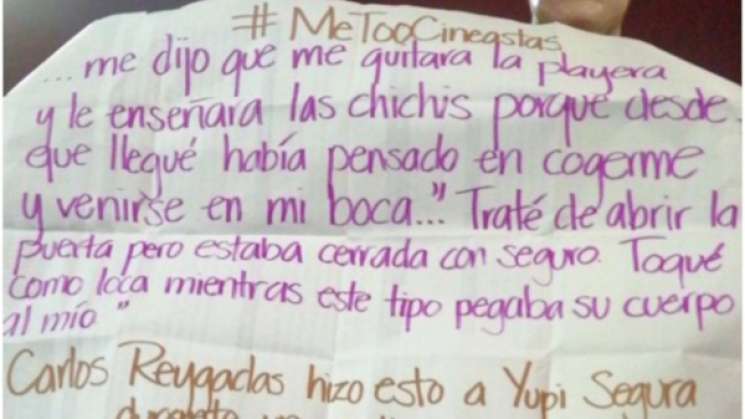 #MeTooCineastas
...me dijo que me quitara la playera
y le enseñara las chichis porque desde
que llegué había pensado en cogerme
y venirse en mi boca..." Traté de abrir la
puerta pero estaba cerrada con seguro. Toqué
como loca mientras este tipo pegaba su cuerpo
al mío"
Carlos Reygadas hizo esto a Yupi Segura